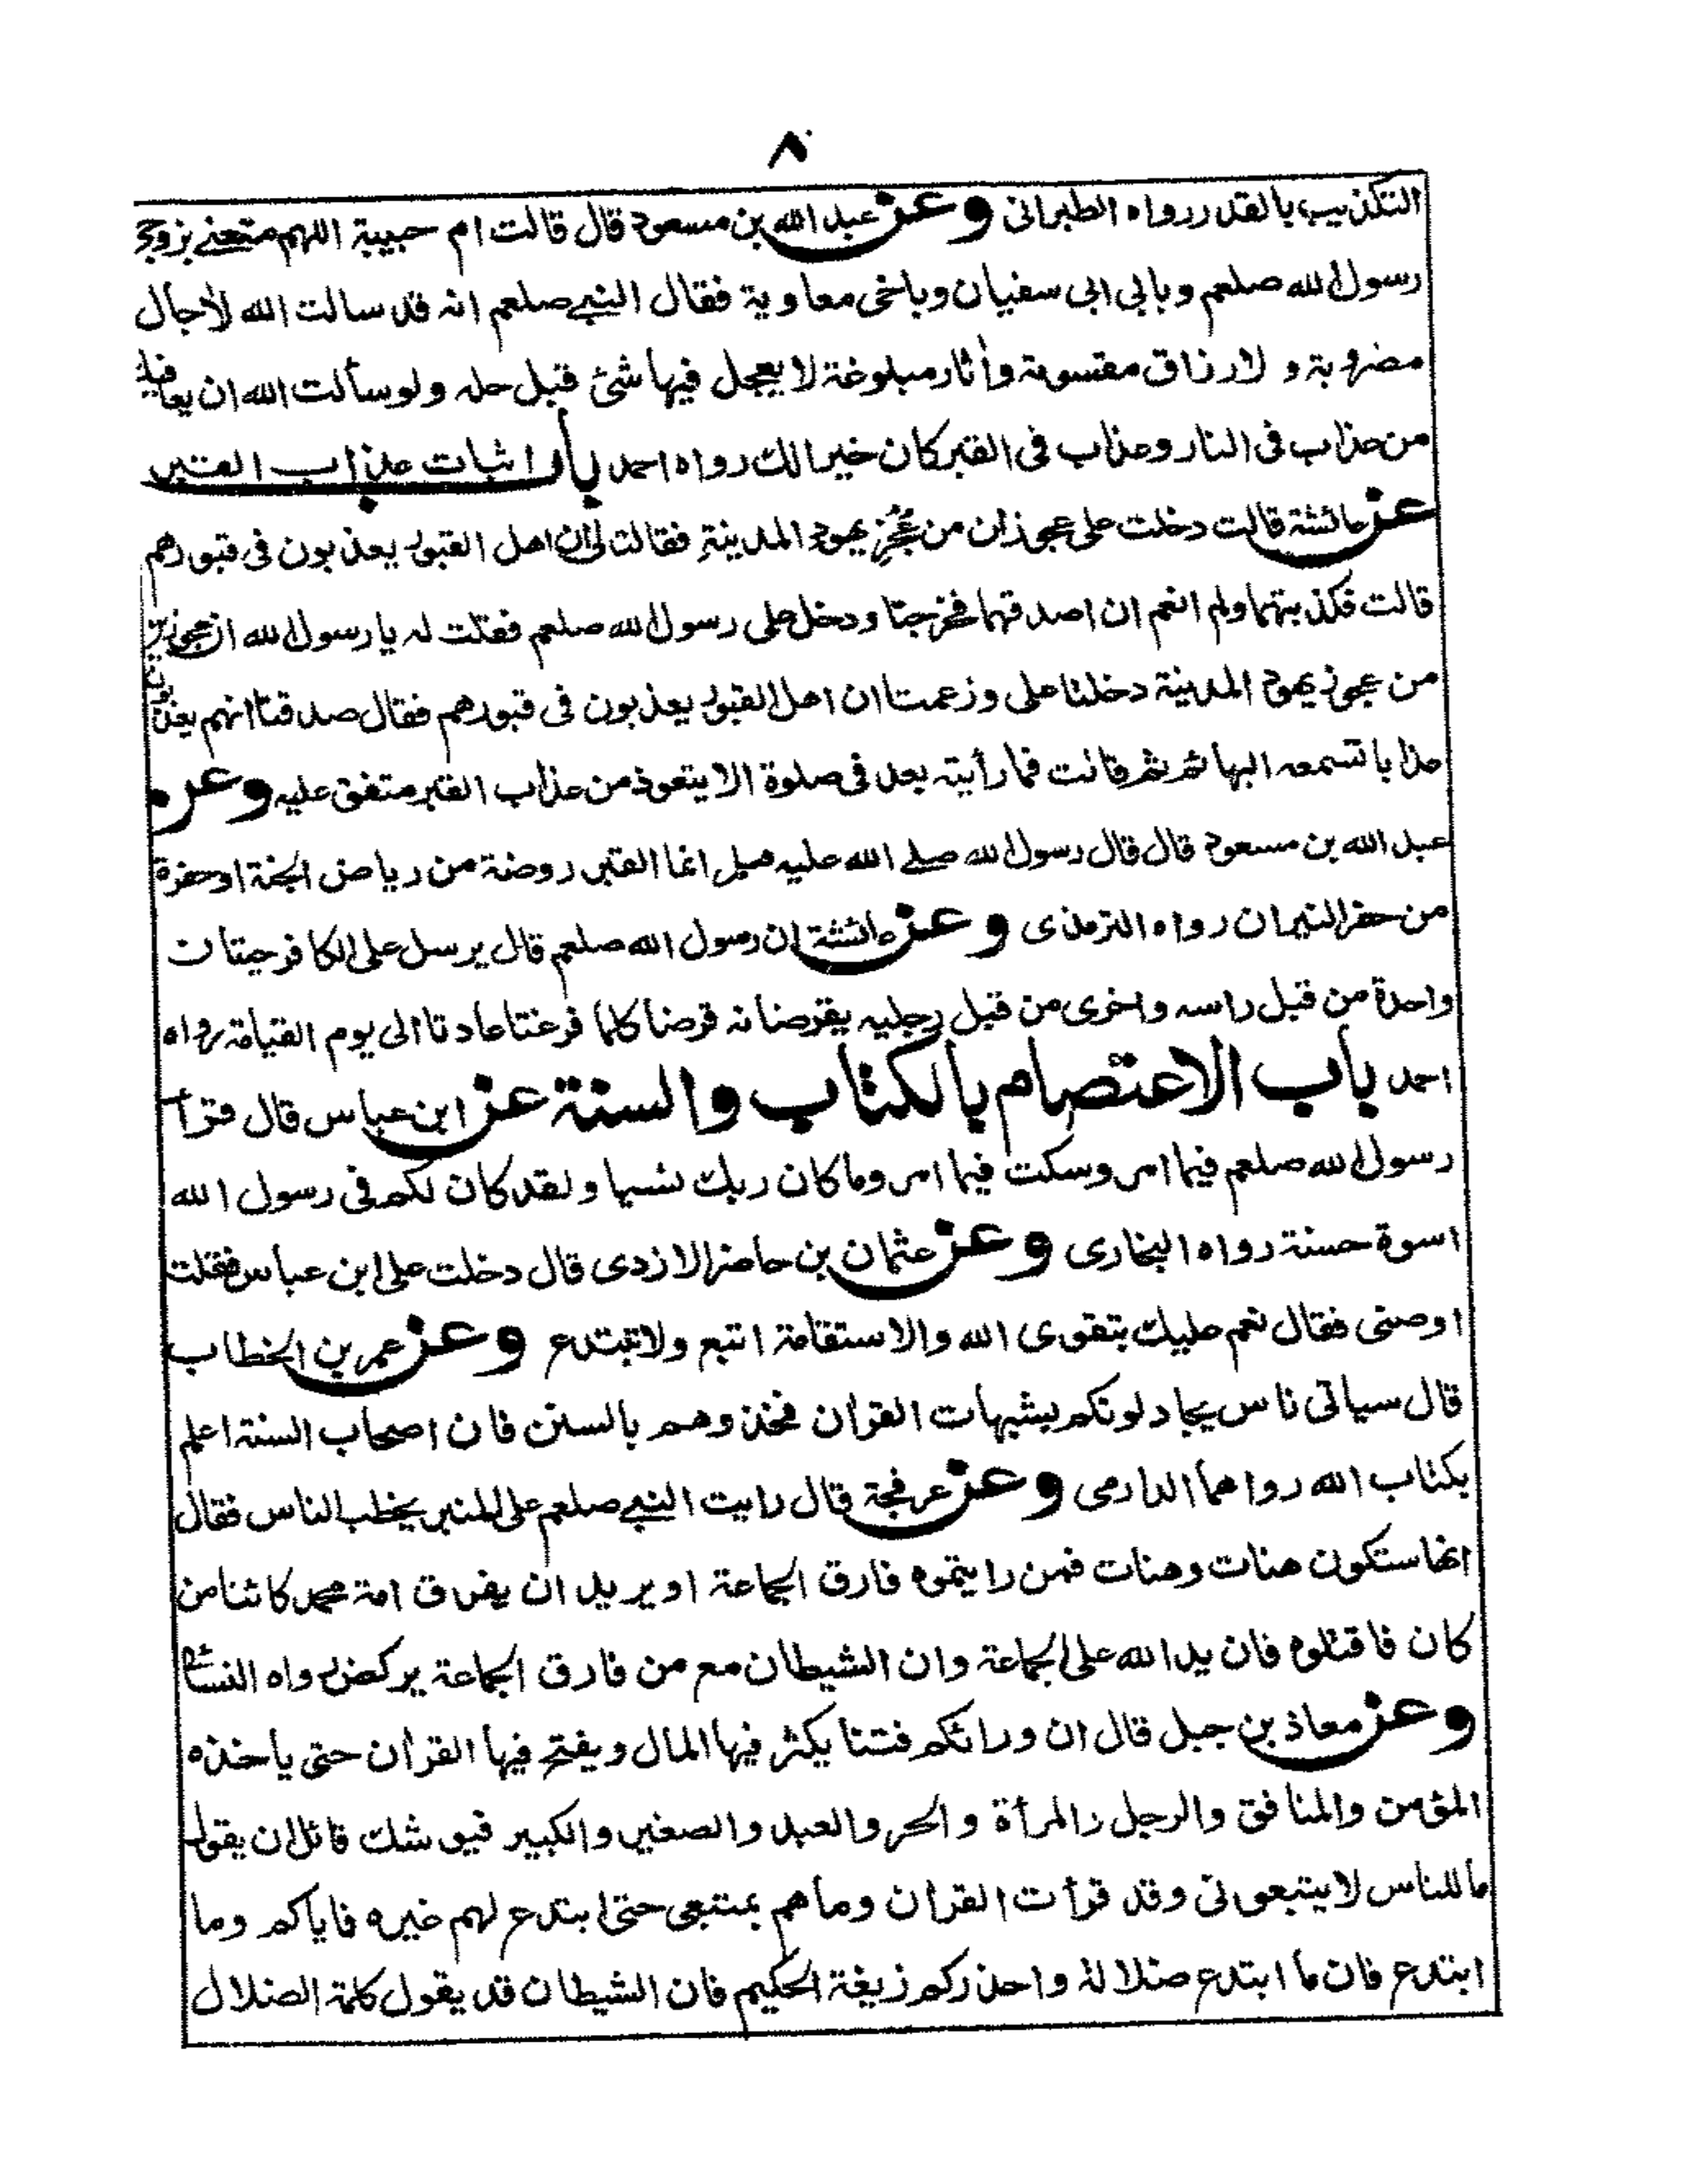 ٨
التكذيب بالقدر رواه الطبرانى وعن عبد الله بن مسعود قال قالت ام حبيبة اللهم متعنے بزوجے
رسول الله صلعم وبابى ابى سفيان وباخى معاوية فقال النبے صلعم انه قد سالت الله لأجال
مضروبة و لارزاق مقسومة وأثار مبلوغة لا يعجل فيها شئ قبل حله ولو سألت الله ان يعافيك
من عذاب فى النار وعذاب فى القبر كان خيرا لك رواه احمد باب اثبات عذاب القبر
عن عائشة قالت دخلت على عجوزان من عُجُزِ يهود المدينةِ فقالتا لى ان اهل القبور يعذبون فى قبورهم
قالت فكذبتهما ولم انعم ان اصدقهما فخرجتا ودخل على رسول الله صلعم فقلت له يا رسول الله ان عجوزين
من عجوز يهود المدينة دخلتا على وزعمتا ان اهل القبور يعذبون فى قبورهم فقال صدقتا انهم يعذبون
عذابا تسمعه البهائم ثم قالت فما رأيته بعد فى صلوة الا يتعوذ من عذاب القبر متفق عليه وعن
عبد الله بن مسعود قال قال رسول الله صلے الله عليه وسلم انما القبر روضة من رياض الجنة او حفرة
من حفر النيران رواه الترمذى وعن عائشة ان رسول الله صلعم قال يرسل على الكافر حيتان
واحدة من قبل راسه واخرى من قبل رجليه يقرضانه قرضا كلما فرغتا عادتا الى يوم القيامة رواه
احمد باب الاعتصام بالكتاب والسنة عن ابن عباس قال قرأ
رسول الله صلعم فيما امر وسكت فيما امر وما كان ربك نسيا ولقد كان لكم فى رسول الله
اسوة حسنة رواه البخارى وعن عثمان بن حاضر الازدى قال دخلت على ابن عباس فقلت
اوصنى فقال نعم عليك بتقوى الله والاستقامة اتبع ولا تبتدع وعن عمر بن الخطاب
قال سياتى ناس يجادلونكم بشبهات القرأن فخذوهم بالسنن فان اصحاب السنة اعلم
بكتاب الله رواهما الدارمى وعن عرفجة قال رايت النبے صلعم على المنبر يخطب الناس فقال
انها ستكون هنات وهنات فمن رايتموه فارق الجماعة او يريد ان يفرق امة محمد كائنا من
كان فاقتلوه فان يد الله على الجماعة وان الشيطان مع من فارق الجماعة يركض رواه النسائى
وعن معاذ بن جبل قال ان ورائكم فتنا يكثر فيها المال ويفتح فيها القرأن حتى ياخذه
المؤمن والمنافق والرجل والمرأة والحر والعبد والصغير والكبير فيوشك قائل ان يقول
ما للناس لا يتبعونى وقد قرأت القرأن وما هم بمتبعى حتى ابتدع لهم غيره فاياكم وما
ابتدع فان ما ابتدع ضلالة واحذركم زيغة الحكيم فان الشيطان قد يقول كلمة الضلال